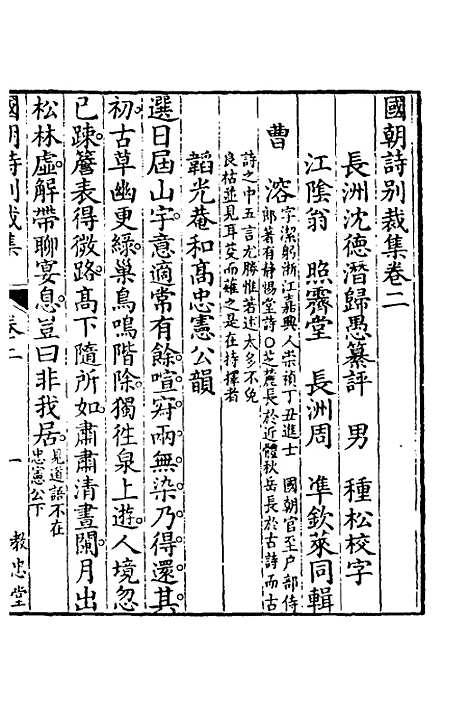 國朝詩別裁集卷二
長洲沈德潛歸愚纂評　男　種松校字
江陰翁　照霽堂　長洲周　準欽萊同輯
曹　溶字潔躬浙江嘉興人崇禎丁丑進士　國朝官至戶部侍
郎著有靜惕堂詩〇芝麓長於近體秋岳長於古詩而古
詩之中五言尤勝惟若述太多不免
良楛並見耳芟而薙之是在持擇者
韜光菴和高忠憲公韻
選日屆山宇意適常有餘喧𡧯兩無染乃得還其
初古草幽更綠巢鳥鳴階除獨徃泉上遊人境忽
已踈簷表得微路高下隨所如肅肅清晝閴月出
松林虛解帶聊宴息豈曰非我居見道語不在
忠憲公下
國朝詩別裁集　卷二　一　教忠堂